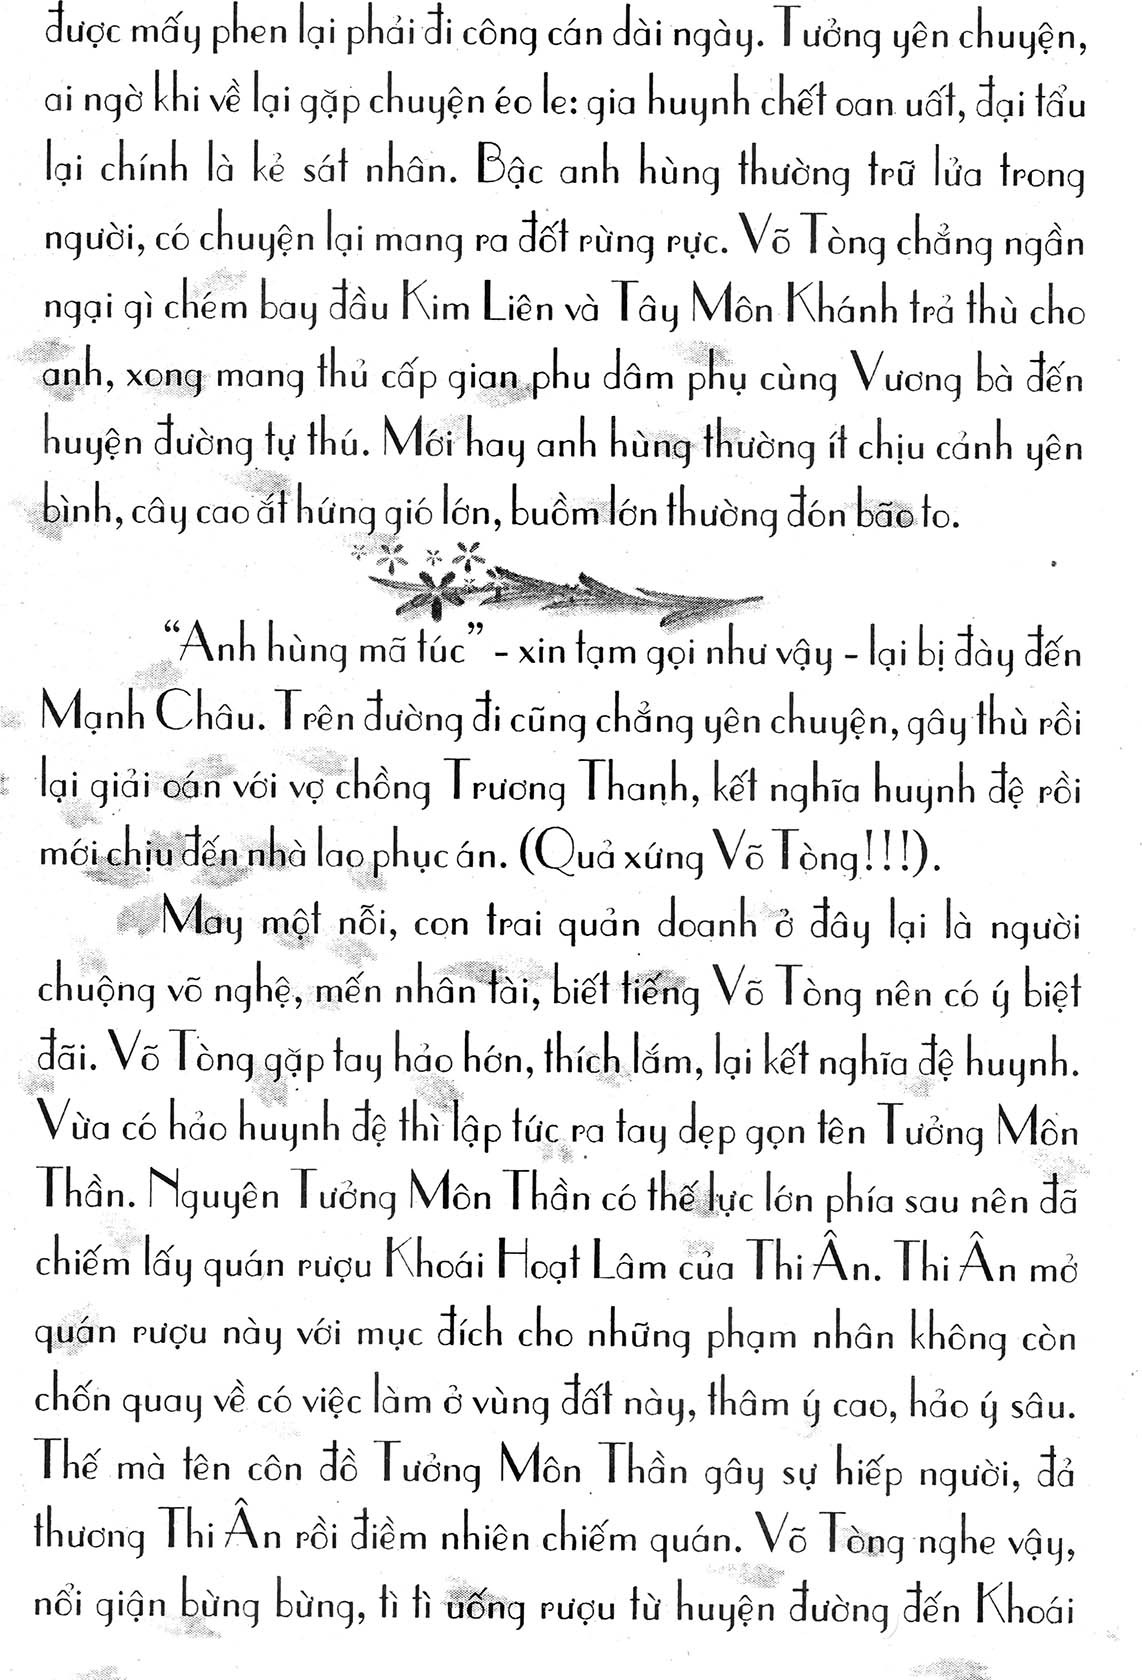 được mấy phen lại phải đi công cán dài ngày. Tưởng yên chuyện,
ai ngờ khi về lại gặp chuyện éo le: gia huynh chết oan uất, đại tẩu
lại chính là kẻ sát nhân. Bậc anh hùng thường trữ lửa trong
người, có chuyện lại mang ra đốt rừng rực. Võ Tòng chẳng ngần
ngại gì chém bay đầu Kim Liên và Tây Môn Khánh trả thù cho
anh, xong mang thủ cấp gian phu dâm phụ cùng Vương bà đến
huyện đường tự thú. Mới hay anh hùng thường ít chịu cảnh yên
bình, cây cao ắt hứng gió lớn, buồm lớn thường đón bão to.
“Anh hùng mã túc” - xin tạm gọi như vậy - lại bị đày đến
Mạnh Châu. Trên đường đi cũng chẳng yên chuyện, gây thù rồi
lại giải oán với vợ chồng Trương Thanh, kết nghĩa huynh đệ rồi
mới chịu đến nhà lao phục án. (Quả xứng Võ Tòng!!!).
May một nỗi, con trai quản doanh ở đây lại là người
chuộng võ nghệ, mến nhân tài, biết tiếng Võ Tòng nên có ý biệt
đãi. Võ Tòng gặp tay hảo hớn, thích lắm, lại kết nghĩa đệ huynh.
Vừa có hảo huynh đệ thì lập tức ra tay dẹp gọn tên Tưởng Môn
Thần. Nguyên Tưởng Môn Thần có thế lực lớn phía sau nên đã
chiếm lấy quán rượu Khoái Hoạt Lâm của Thi Ân. Thi Ân mở
quán rượu này với mục đích cho những phạm nhân không còn
chốn quay về có việc làm ở vùng đất này, thâm ý cao, hảo ý sâu.
Thế mà tên côn đồ Tưởng Môn Thần gây sự hiếp người, đả
thương Thi Ân rồi điềm nhiên chiếm quán. Võ Tòng nghe vậy,
nổi giận bừng bừng, tì tì uống rượu từ huyện đường đến Khoái